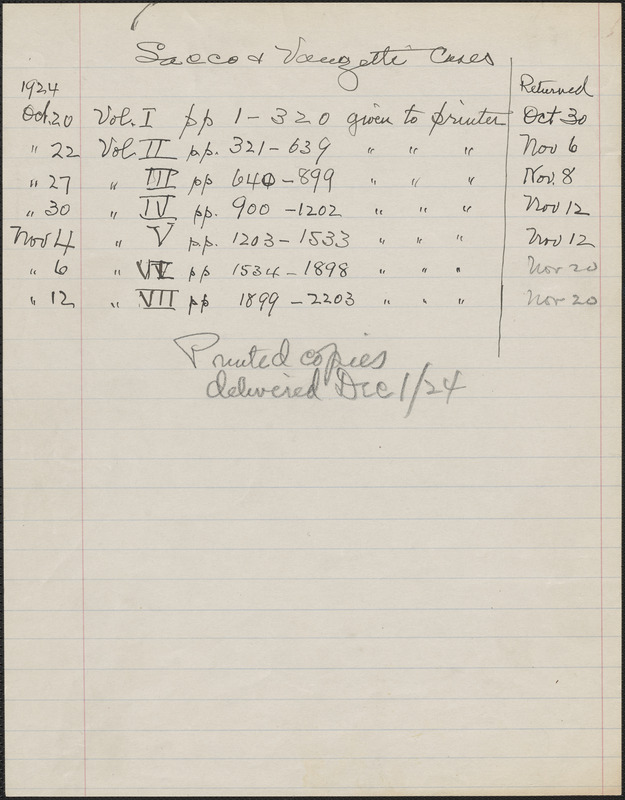 Sacco & Vanzetti Cases
1924 Returned
Oct. 20 Vol. I pp 1-320 given to printer Oct 30
" 22 Vol. II pp. 321-639 " " " Nov 6
" 27 " III pp 640-899 " " " Nov. 8
" 30 " IV pp. 900-1202 " " " Nov 12
Nov 4 " V pp. 1203-1533 " " " Nov 12
" 6 " VI pp 1534-1898 " " " Nov 20
" 12 " VII pp 1899-2203 " " " Nov 20
Printed copies
delivered Dec 1/24